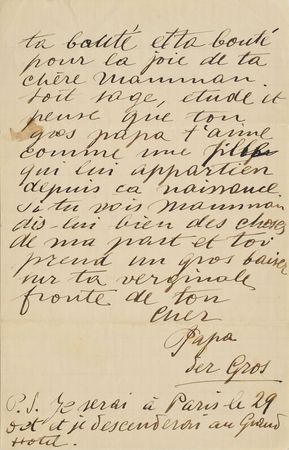 ta bauté et ta bouté
pour la joie de ta
chère mamman.
soit sage, etude et
pense que ton
gros papa t'aime
comme une
qui lui appartien
depuis ca naissance
si tu vois mamman
dis-lui bien des choses
de ma part et toi
prend un gros baiser
sur ta verginale
fronte de ton
cher
Papa
der Gros
P.S. Je serai à Paris le 29
oct et je descenderai au Grand
Hotel.